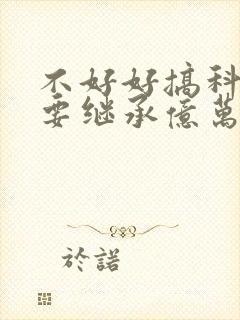 不好好搞科
要继承億萬
於諾